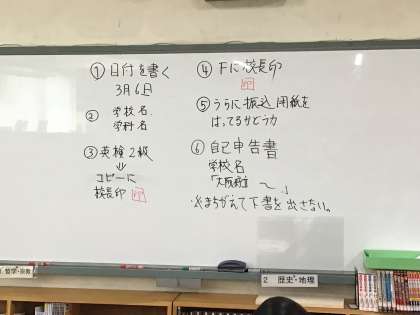 ① 日付を書く
3月6日
② 学校名
学科名
③ 英検2級
⇓
コピーに
校長印 印
④ 下に校長印
印
⑤ うらに振込用紙を
はってるかどうか
⑥ 自己申告書
学校名
「大阪府立 〜 」
※まちがえて下書を出さない。
2 歴史・地理
哲学・宗教